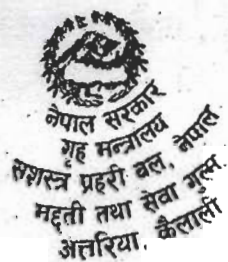 नेपाल सरकार
गृह मन्त्रालय
सशस्त्र प्रहरी बल, नेपाल
मद्दती तथा सेवा गुल्म
अत्तरिया, कैलाली